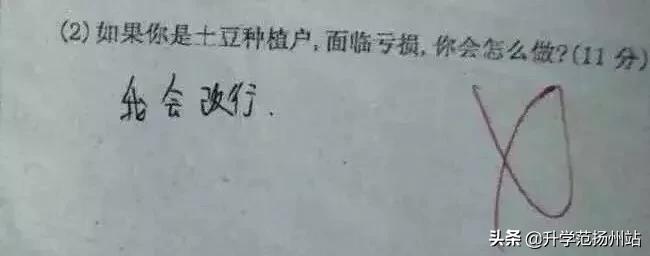 (2)如果你是土豆种植户,面临亏损,你会怎么做?(11分)
我会改行.
头条 @升学范扬州站